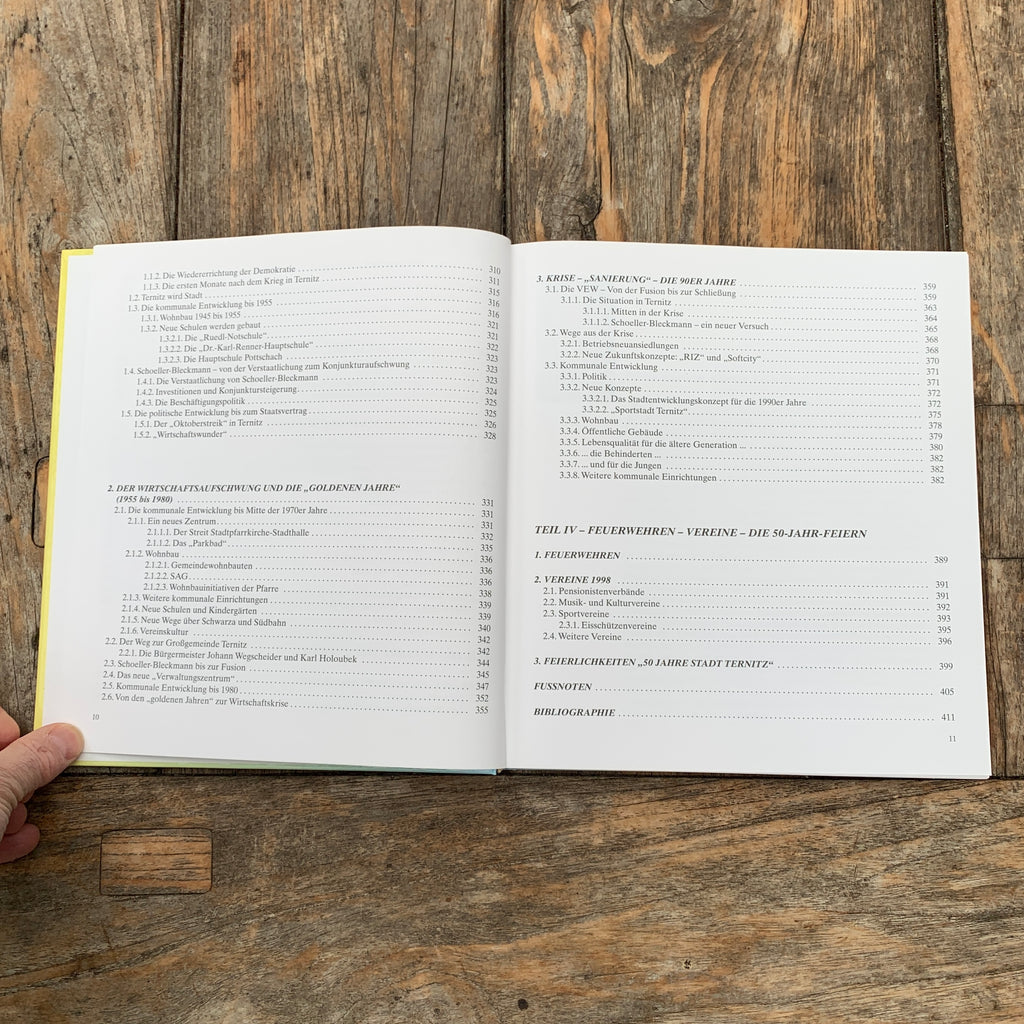 1.1.2. Die Wiedererrichtung der Demokratie 310
1.1.3. Die ersten Monate nach dem Krieg in Ternitz 311
1.2. Ternitz wird Stadt 315
1.3. Die kommunale Entwicklung bis 1955 316
1.3.1. Wohnbau 1945 bis 1955 316
1.3.2. Neue Schulen werden gebaut 321
1.3.2.1. Die „Ruedl-Notschule“ 321
1.3.2.2. Die „Dr.-Karl-Renner-Hauptschule“ 322
1.3.2.3. Die Hauptschule Pottschach 323
1.4. Schoeller-Bleckmann – von der Verstaatlichung zum Konjunkturaufschwung 323
1.4.1. Die Verstaatlichung von Schoeller-Bleckmann 323
1.4.2. Investitionen und Konjunktursteigerung 324
1.4.3. Die Beschäftigungspolitik 325
1.5. Die politische Entwicklung bis zum Staatsvertrag 325
1.5.1. Der „Oktoberstreik“ in Ternitz 326
1.5.2. „Wirtschaftswunder“ 328
2. DER WIRTSCHAFTSAUFSCHWUNG UND DIE „GOLDENEN JAHRE“
(1955 bis 1980) 331
2.1. Die kommunale Entwicklung bis Mitte der 1970er Jahre 331
2.1.1. Ein neues Zentrum 331
2.1.1.1. Der Streit Stadtpfarrkirche-Stadthalle 332
2.1.1.2. Das „Parkbad“ 335
2.1.2. Wohnbau 336
2.1.2.1. Gemeindewohnbauten 336
2.1.2.2. SAG 336
2.1.2.3. Wohnbauinitiativen der Pfarre 338
2.1.3. Weitere kommunale Einrichtungen 339
2.1.4. Neue Schulen und Kindergärten 339
2.1.5. Neue Wege über Schwarza und Südbahn 340
2.1.6. Vereinskultur 342
2.2. Der Weg zur Großgemeinde Ternitz 342
2.2.1. Die Bürgermeister Johann Wegscheider und Karl Holoubek 344
2.3. Schoeller-Bleckmann bis zur Fusion 345
2.4. Das neue „Verwaltungszentrum“ 347
2.5. Kommunale Entwicklung bis 1980 352
2.6. Von den „goldenen Jahren“ zur Wirtschaftskrise 355
10
3. KRISE – „SANIERUNG“ – DIE 90ER JAHRE 359
3.1. Die VEW – Von der Fusion bis zur Schließung 359
3.1.1. Die Situation in Ternitz 363
3.1.1.1. Mitten in der Krise 364
3.1.1.2. Schoeller-Bleckmann – ein neuer Versuch 365
3.2. Wege aus der Krise 368
3.2.1. Betriebsneuansiedlungen 368
3.2.2. Neue Zukunftskonzepte: „RIZ“ und „Softcity“ 370
3.3. Kommunale Entwicklung 371
3.3.1. Politik 371
3.3.2. Neue Konzepte 372
3.3.2.1. Das Stadtentwicklungskonzept für die 1990er Jahre 372
3.3.2.2. „Sportstadt Ternitz“ 375
3.3.3. Wohnbau 378
3.3.4. Öffentliche Gebäude 379
3.3.5. Lebensqualität für die ältere Generation ... 380
3.3.6. ... die Behinderten ... 382
3.3.7. ... und für die Jungen 382
3.3.8. Weitere kommunale Einrichtungen 382
TEIL IV – FEUERWEHREN – VEREINE – DIE 50-JAHR-FEIERN
1. FEUERWEHREN 389
2. VEREINE 1998 391
2.1. Pensionistenverbände 391
2.2. Musik- und Kulturvereine 392
2.3. Sportvereine 393
2.3.1. Eisschützenvereine 395
2.4. Weitere Vereine 396
3. FEIERLICHKEITEN „50 JAHRE STADT TERNITZ“ 399
FUSSNOTEN 405
BIBLIOGRAPHIE 411
11